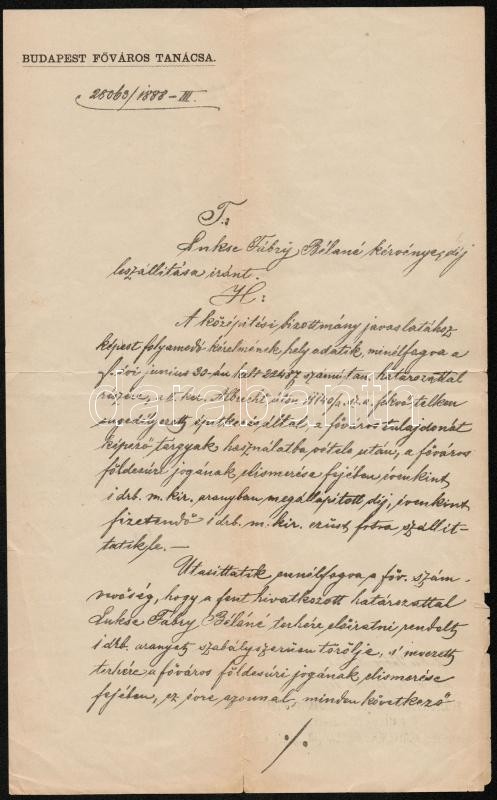 BUDAPEST FŐVÁROS TANÁCSA.
28063/1888-III.
T.:
Lukse Fábry Béláné kérvénye, díj
leszállitása iránt.
H:
A középitési bizottmány javaslatához
képest folyamodó kérelmének hely adatik, minélfogva a
f. évi junius 30-án kelt 22487 számú tan. határozattal
részére, a II. ker. Albrecht úton fekvő telken
engedélyezett építkezés által, a főváros tulajdonát
képező tárgyak használatba vétele után, a főváros
földesúri jogának elismerése fejében évenkint
1 drb. m. kir. aranyban megállapított díj, évenkint
fizetendő 1 drb. m. kir. ezüst forintra szállít-
tatik le. —
Utasíttatik ennélfogva a főv. szám-
vevőség, hogy a fent hivatkozott határozattal
Lukse Fábry Béláné terhére előiratni rendelt
1 drb. aranyat szabályszerűen törölje, s' nevezett
terhére a főváros földesúri jogának elismerése
fejében, ez évre azonnal, minden következő
./.
darabanth